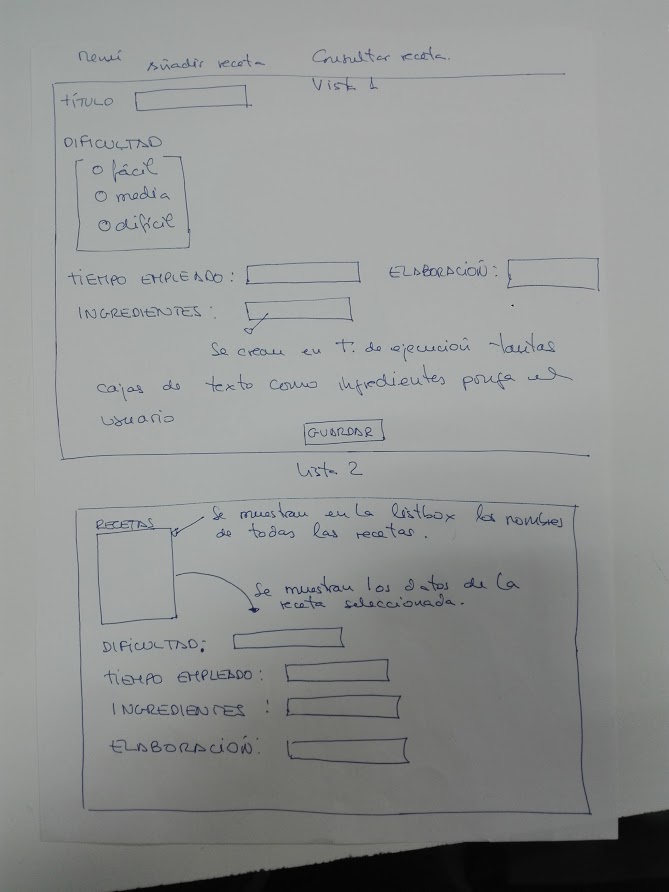 Menú Añadir receta Consultar receta.
Vista 1
TÍTULO
DIFICULTAD
fácil
media
difícil
TIEMPO EMPLEADO: ELABORACIÓN:
INGREDIENTES:
Se crean en T. de ejecución tantas
cajas de texto como ingredientes ponga el
usuario
GUARDAR
Vista 2
RECETAS
Se muestran en la listbox los nombres
de todas las recetas.
Se muestran los datos de la
receta seleccionada.
DIFICULTAD:
TIEMPO EMPLEADO:
INGREDIENTES :
ELABORACIÓN: